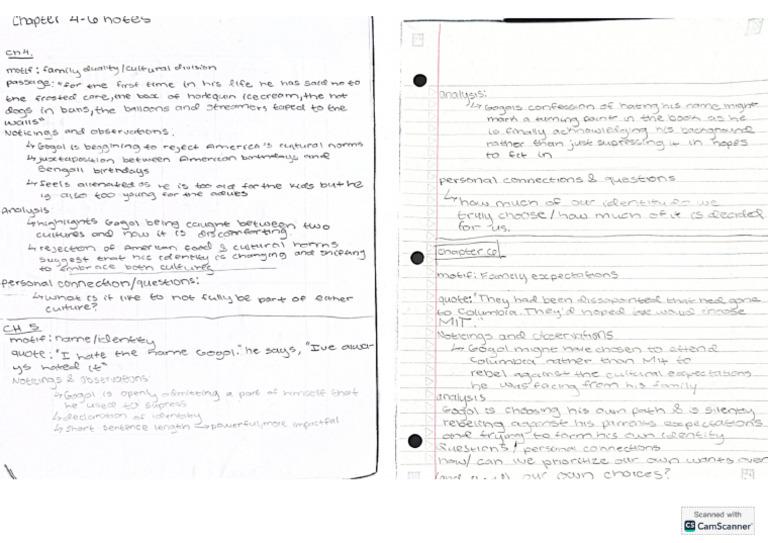 Chapter 4-6 notes
CH 4.
motif: family duality/cultural division
passage: "for the first time in his life he has said no to
the frosted cake, the box of harlequin icecream, the hot
dogs in buns, the balloons and streamers taped to the
walls"
Noticings and observations.
↳ Gogol is beggining to reject America's cultural norms
↳ juxtaposition between American birthdays and
Bengali birthdays
↳ feels alienated as he is too old for the kids but he
is also too young for the adults
Analysis
↳ highlights Gogol being caught between two
cultures and how it is discomforting
↳ rejection of American food & cultural norms
suggest that his identity is changing and shifting
to embrace both cultures
personal connection/questions:
↳ what is it like to not fully be part of either
culture?
CH 5
motif: name/identity
quote: "I hate the name Gogol." he says, "I've alwa-
ys hated it"
Noticings & observations:
↳ Gogol is openly admitting a part of himself that
he used to supress
↳ declaration of identity
↳ short sentence length → powerful, more impactful
analysis:
↳ Gogols confession of hating his name might
mark a turning point in the book as he
is finally acknowledging his background
rather than just supressing it in hopes
to fit in
personal connections & questions
↳ how much of our identity do we
truly choose/how much of it is decided
for us.
chapter 6
motif: Family expectations
quote: "They had been dissapointed that he'd gone
to Columbia. They'd hoped he would choose
MIT."
Noticings and observitions
↳ Gogol might have chosen to attend
Columbia rather than MIT to
rebel against the cultural expectations
he was facing from his family
analysis
Gogol is choosing his own path & is silently
rebelling against his parents expectations
and trying to form his own identity
Questions/personal connections
how/can we prioritize our own wants over
our own choices?
Scanned with
CS CamScanner